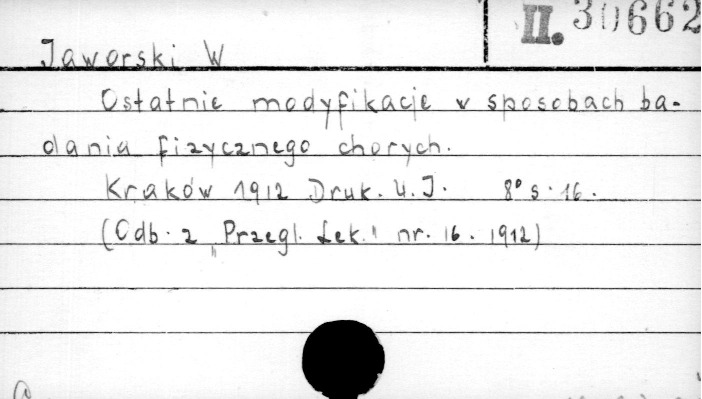 II. 30662
Jaworski W
Ostatnie modyfikacje w sposobach ba-
dania fizycznego chorych.
Kraków 1912 Druk. U. J. 8° s. 16.
(Odb. z „Przegl. Lek." nr. 16. 1912)